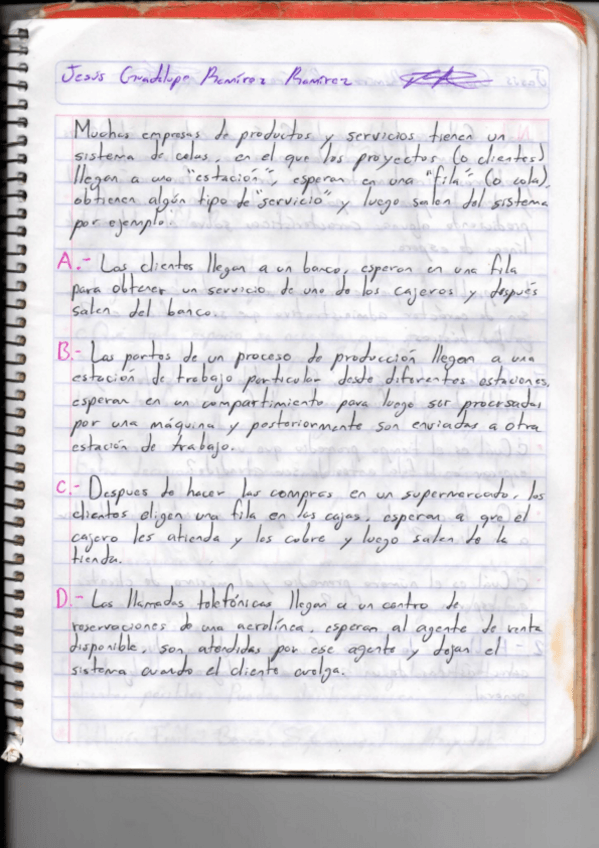 Jesús Guadalupe Ramírez Ramírez
Muchas empresas de productos y servicios tienen un
sistema de colas, en el que los proyectos (o clientes)
llegan a una "estación", esperan en una "fila" (o cola),
obtienen algún tipo de "servicio" y luego salen del sistema
por ejemplo:
A.- Los clientes llegan a un banco, esperan en una fila
para obtener un servicio de uno de los cajeros y después
salen del banco.
B.- Las partes de un proceso de producción llegan a una
estación de trabajo particular desde diferentes estaciones,
esperan en un compartimiento para luego ser procesadas
por una máquina y posteriormente son enviadas a otra
estación de trabajo.
C.- Despues de hacer las compras en un supermercado, los
clientes eligen una fila en las cajas, esperan a que el
cajero les atienda y les cobre y luego salen de la
tienda.
D.- Las llamadas telefónicas llegan a un centro de
reservaciones de una aerolínea, esperan al agente de venta
disponible, son atendidas por ese agente y dejan el
sistema cuando el cliente cuelga.